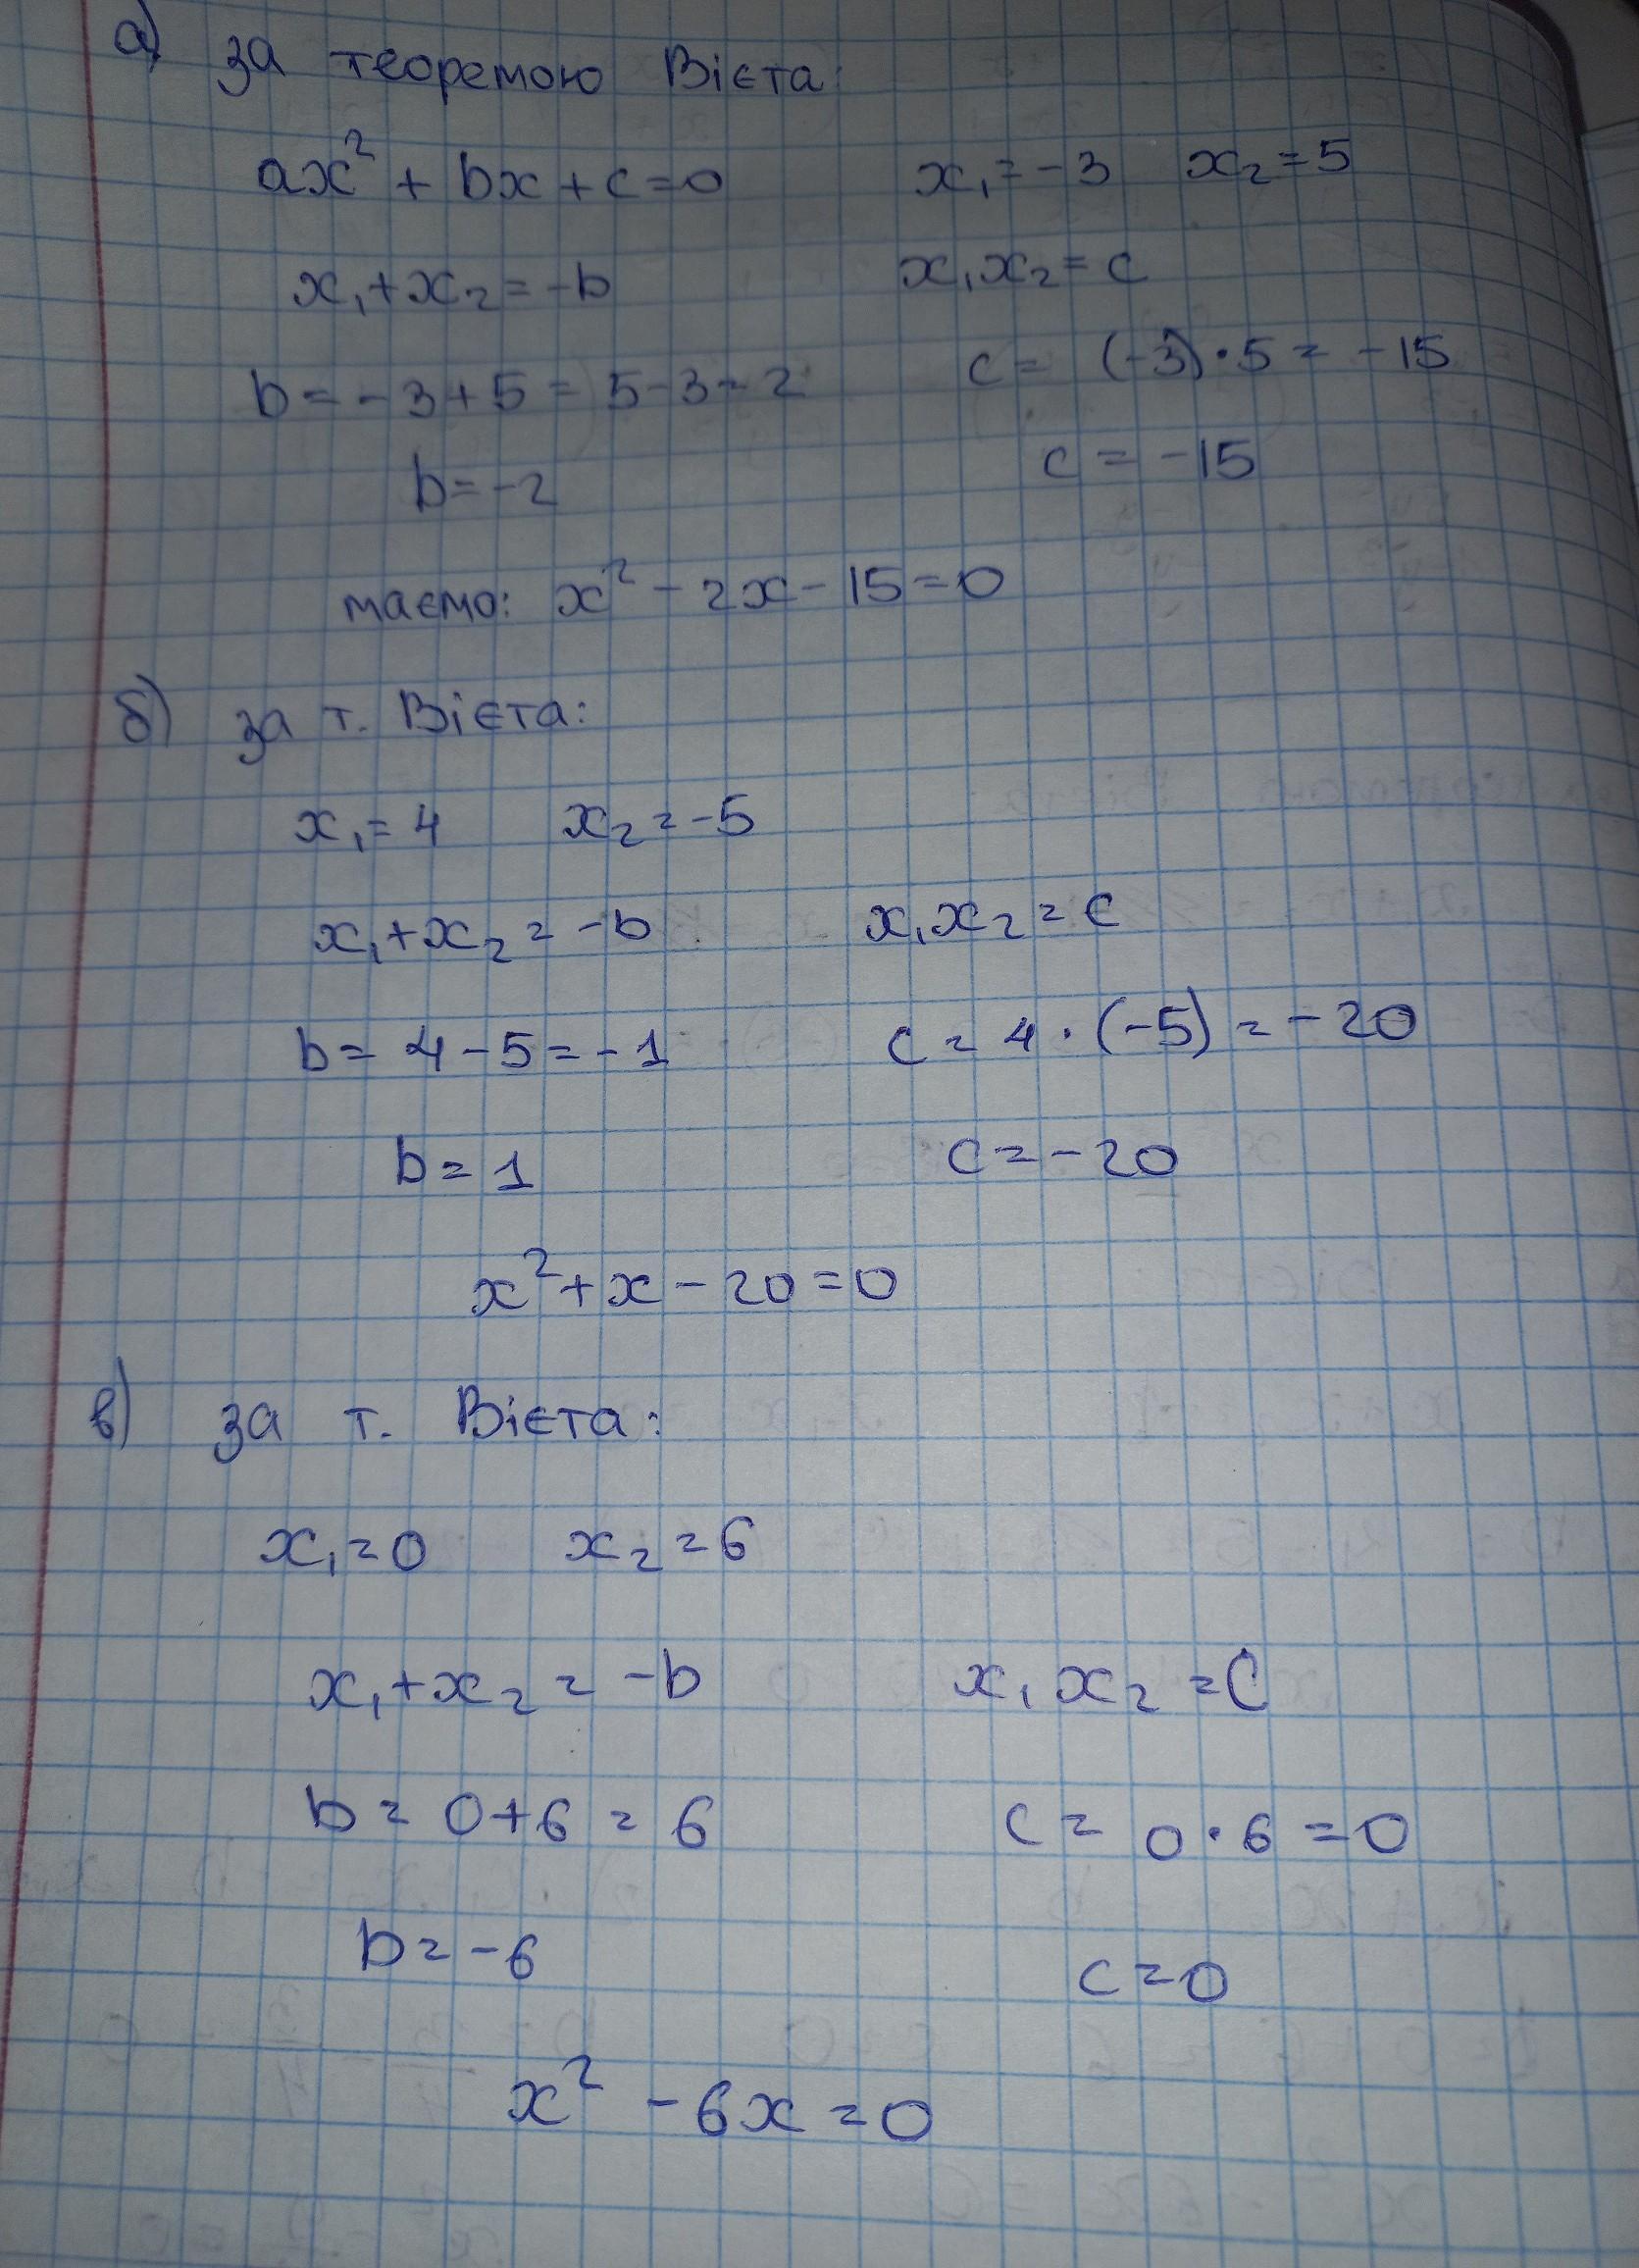 а) за теоремою Вієта:
ax² + bx + c = 0 x₁ = -3 x₂ = 5
x₁ + x₂ = -b x₁x₂ = c
b = -3 + 5 = 5 - 3 = 2 c = (-3) · 5 = -15
b = -2 c = -15
маємо: x² - 2x - 15 = 0
б) за т. Вієта:
x₁ = 4 x₂ = -5
x₁ + x₂ = -b x₁x₂ = c
b = 4 - 5 = -1 c = 4 · (-5) = -20
b = 1 c = -20
x² + x - 20 = 0
в) за т. Вієта:
x₁ = 0 x₂ = 6
x₁ + x₂ = -b x₁ x₂ = C
b = 0 + 6 = 6 c = 0 · 6 = 0
b = -6 c = 0
x² - 6x = 0